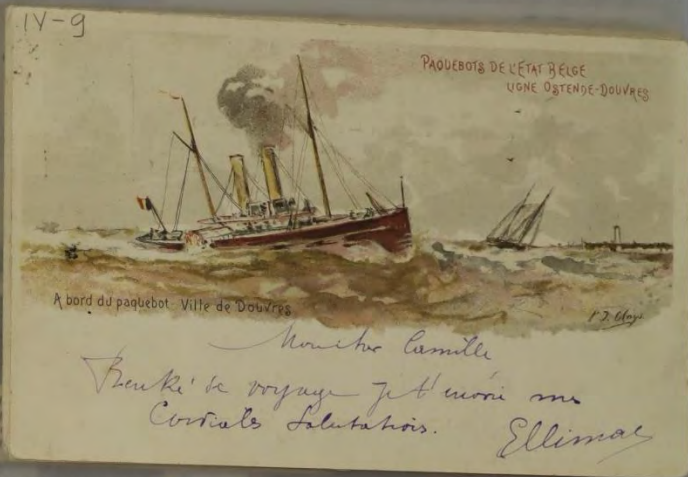 IV-9
PAQUEBOTS DE L'ETAT BELGE
LIGNE OSTENDE-DOUVRES
A bord du paquebot - Ville de Douvres
Mon cher Camille
de voyage je t'envoie mes
Cordiales Salutations.